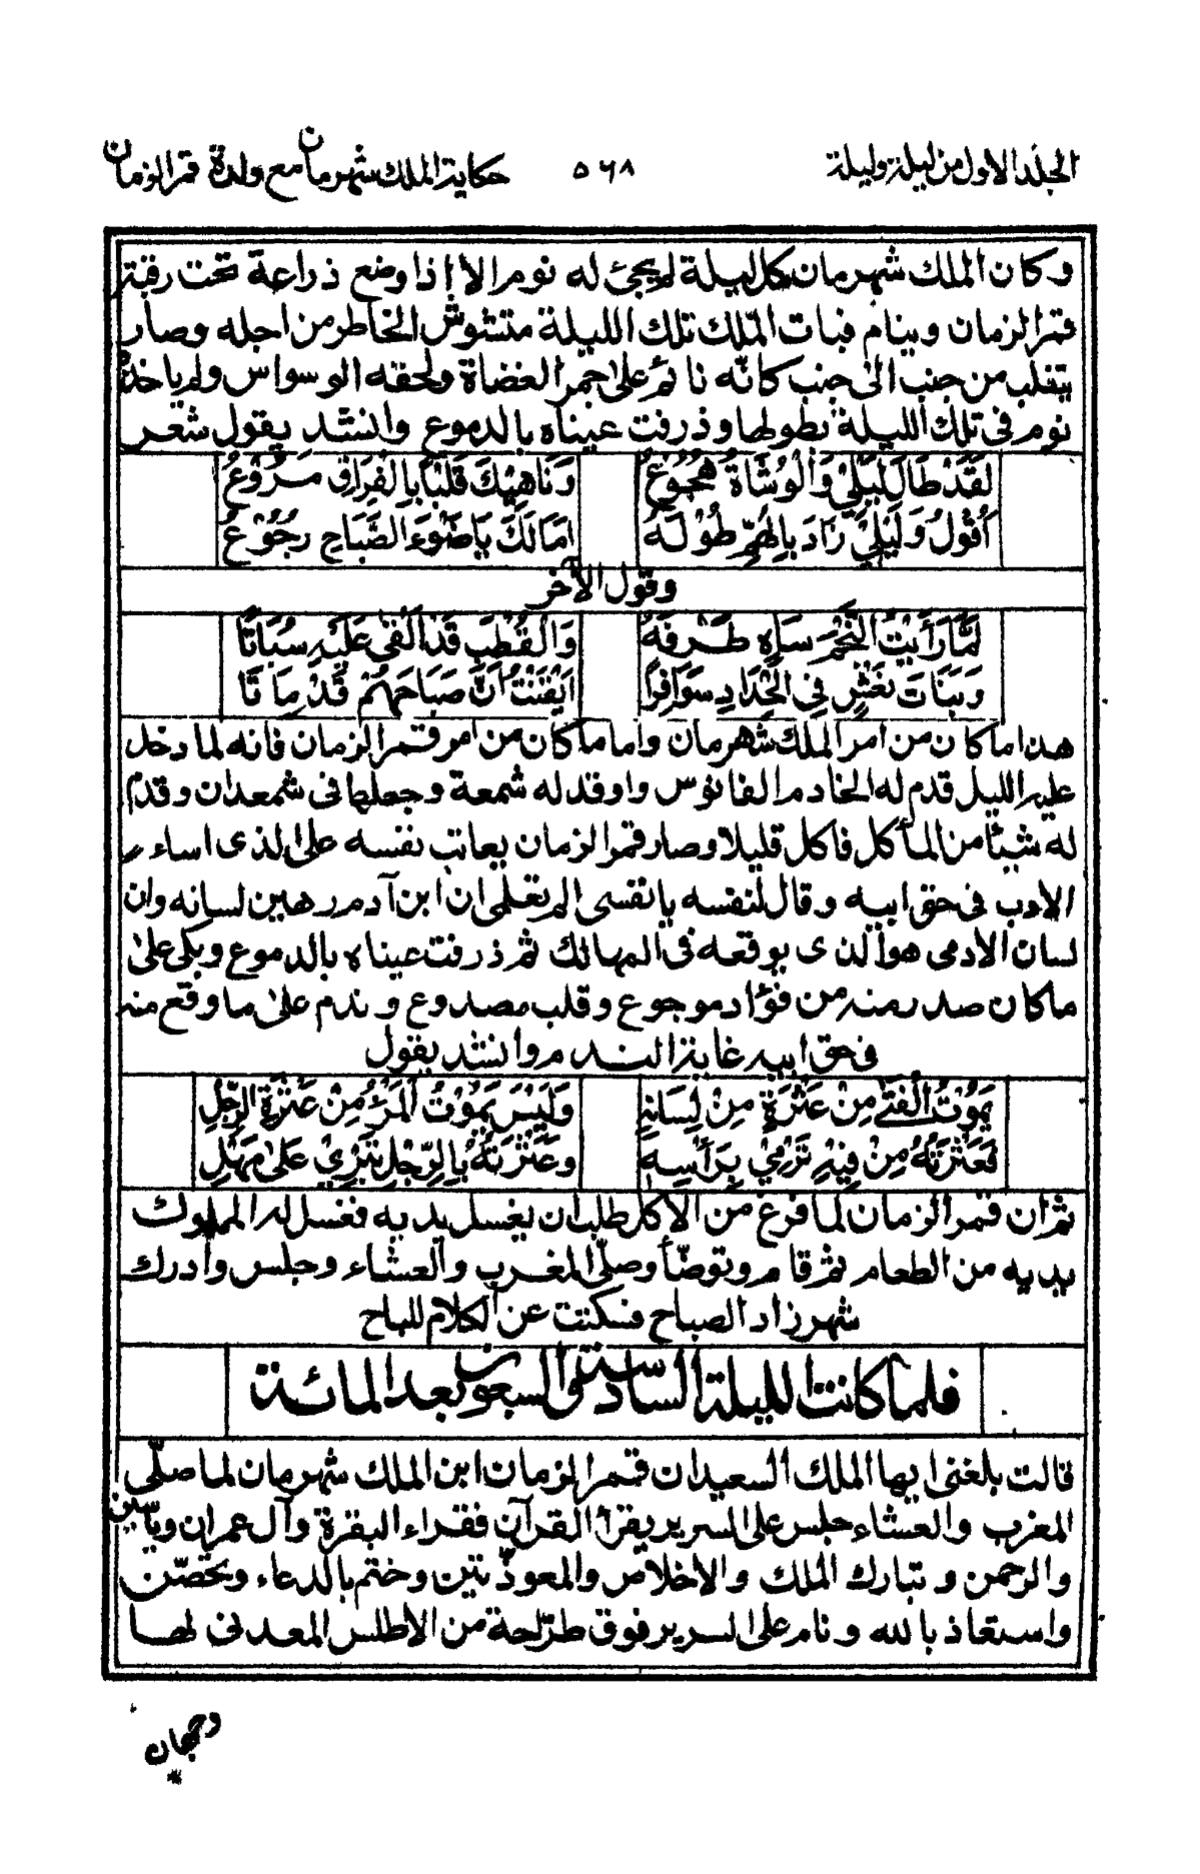 الجلد الاول من ليلة وليلة ٥٦٨ حكاية الملك شهرمان مع ولدة قمر الزمان
وكان الملك شهرمان كل ليلة لم يجئ له نوم الا اذا وضع ذراعة تحت رقبة
قمر الزمان وينام فبات الملك تلك الليلة متشوش الخاطر من اجله وصار
يتقلب من جنب الى جنب كانّه نائم على جمر الغضاة ولحقه الوسواس ولم ياخذه
نوم فى تلك الليلة بطولها وذرفت عيناه بالدموع وانشد يقول شعر
لَقَدْ طَالَ لَيْلِيْ وَالْوُشَاةُ هُجُوْعُ وَنَاهِيْكَ قَلْبًا بِالْفِرَاقِ مَرُوْعُ
اَقُوْلُ وَلَيْلِيْ زَادَ بِالْهَمِّ طُوْلَهُ اَمَالَكَ يَا ضَوْءَ الصَّبَاحِ رُجُوْعُ
وقول الآخر
لَمَّا رَأَيْتُ النَّجْمَ سَاهٍ طَرْفَهُ وَالْقُطْبَ قَدْ اَلْقَى عَلَيْهِ سُبَاتًا
وَبَنَاتَ نَعْشٍ فِى الْحِدَادِ سَوَافِرًا اَيْقَنْتُ اَنَّ صَبَاحَهُمْ قَدْ مَاتَا
هذا ما كان من امر الملك شهرمان واما ما كان من امر قمر الزمان فانه لما دخل
عليه الليل قدم له الخادم الفانوس واوقد له شمعة وجعلها فى شمعدان وقدّم
له شيئا من المأكل فاكل قليلا وصار قمر الزمان يعاتب نفسه على الذى اساء
الادب فى حق ابيه وقال لنفسه يا نفسى الم تعلمى ان ابن آدم رهين لسانه وان
لسان الآدمى هو الذى يوقعه فى المهالك ثم ذرفت عيناه بالدموع وبكى على
ما كان صدر منه من فؤاد موجوع وقلب مصدوع وندم على ما وقع منه
فى حق ابيه غاية الندم وانشد يقول
يَمُوْتُ الْفَتَى مِنْ عَثْرَةٍ مِنْ لِسَانِهِ وَلَيْسَ يَمُوْتُ الْمَرْءُ مِنْ عَثْرَةِ الرِّجْلِ
فَعَثْرَتُهُ مِنْ فِيْهِ تَرْمِيْ بِرَأْسِهِ وَعَثْرَتُهُ بِالرِّجْلِ تَبْرِيْ عَلَى مَهْلِ
ثم ان قمر الزمان لما فرغ من الاكل طلب ان يغسل يديه فغسل له المملوك
يديه من الطعام ثم قام وتوضّأ وصلّى المغرب والعشاء وجلس وادرك
شهرزاد الصباح فسكتت عن الكلام المباح
فلما كانت الليلة السادسة والسبعون بعد المائة
قالت بلغنى ايها الملك السعيد ان قمر الزمان ابن الملك شهرمان لما صلّى
المغرب والعشاء جلس على السرير يقرأ القرآن فقراء البقرة وآل عمران وياسين
والرحمن وتبارك الملك والاخلاص والمعوذّتين وختم بالدعاء وتحصّن
واستعاذ بالله ونام على السرير فوق طرّاحة من الاطلس المعدنى لها
وجهان